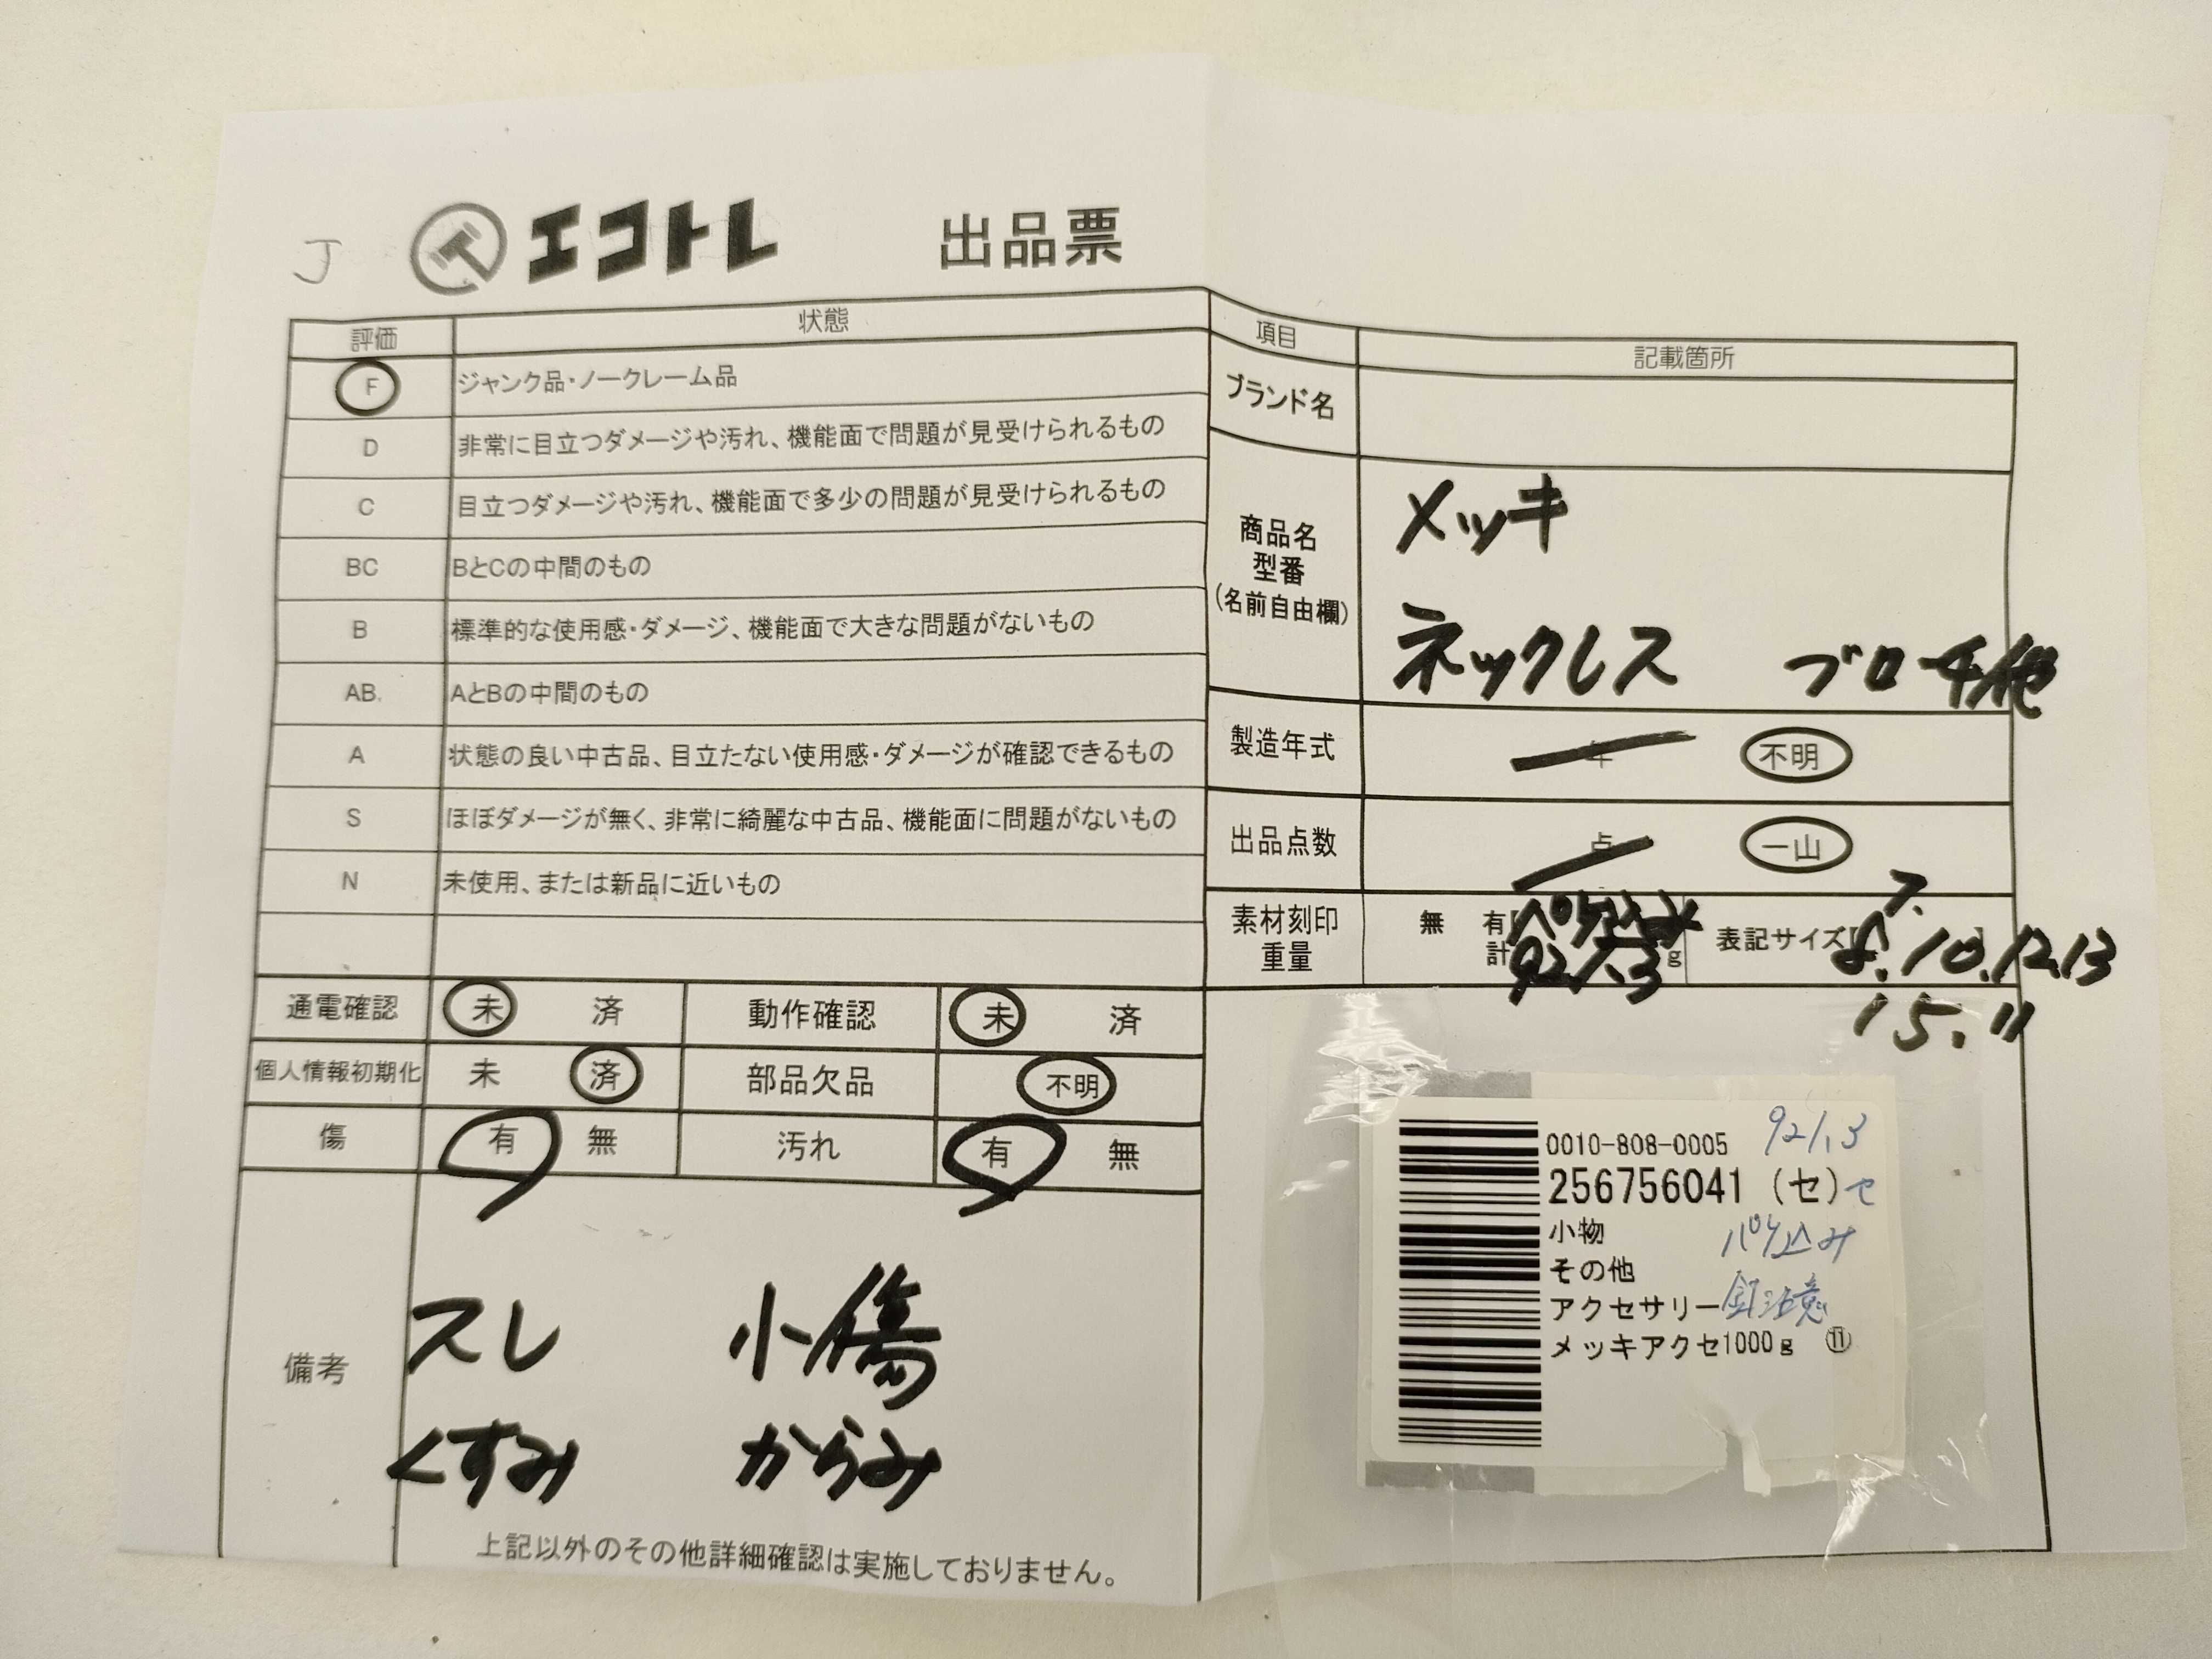 J エコトレ 出品票
評価 状態
F ジャンク品・ノークレーム品
D 非常に目立つダメージや汚れ、機能面で問題が見受けられるもの
C 目立つダメージや汚れ、機能面で多少の問題が見受けられるもの
BC BとCの中間のもの
B 標準的な使用感・ダメージ、機能面で大きな問題がないもの
AB. AとBの中間のもの
A 状態の良い中古品、目立たない使用感・ダメージが確認できるもの
S ほぼダメージが無く、非常に綺麗な中古品、機能面に問題がないもの
N 未使用、または新品に近いもの
通電確認 未 済 動作確認 未 済
個人情報初期化 未 済 部品欠品 不明
傷 有 無 汚れ 有 無
備考
スレ 小傷
くすみ からみ
上記以外のその他詳細確認は実施しておりません。
項目 記載箇所
ブランド名
商品名
型番
(名前自由欄)
メッキ
ネックレス ブローチ他
製造年式 年 不明
出品点数 点 一山
素材刻印
重量
無 有[ パケ込み
計 921.3 g
表記サイズ[ 7.
8.10.12.13
15.11
0010-808-0005 921.3
256756041 (セ) セ
小物 パケ込み
その他
アクセサリー
メッキアクセ1000g ⑪